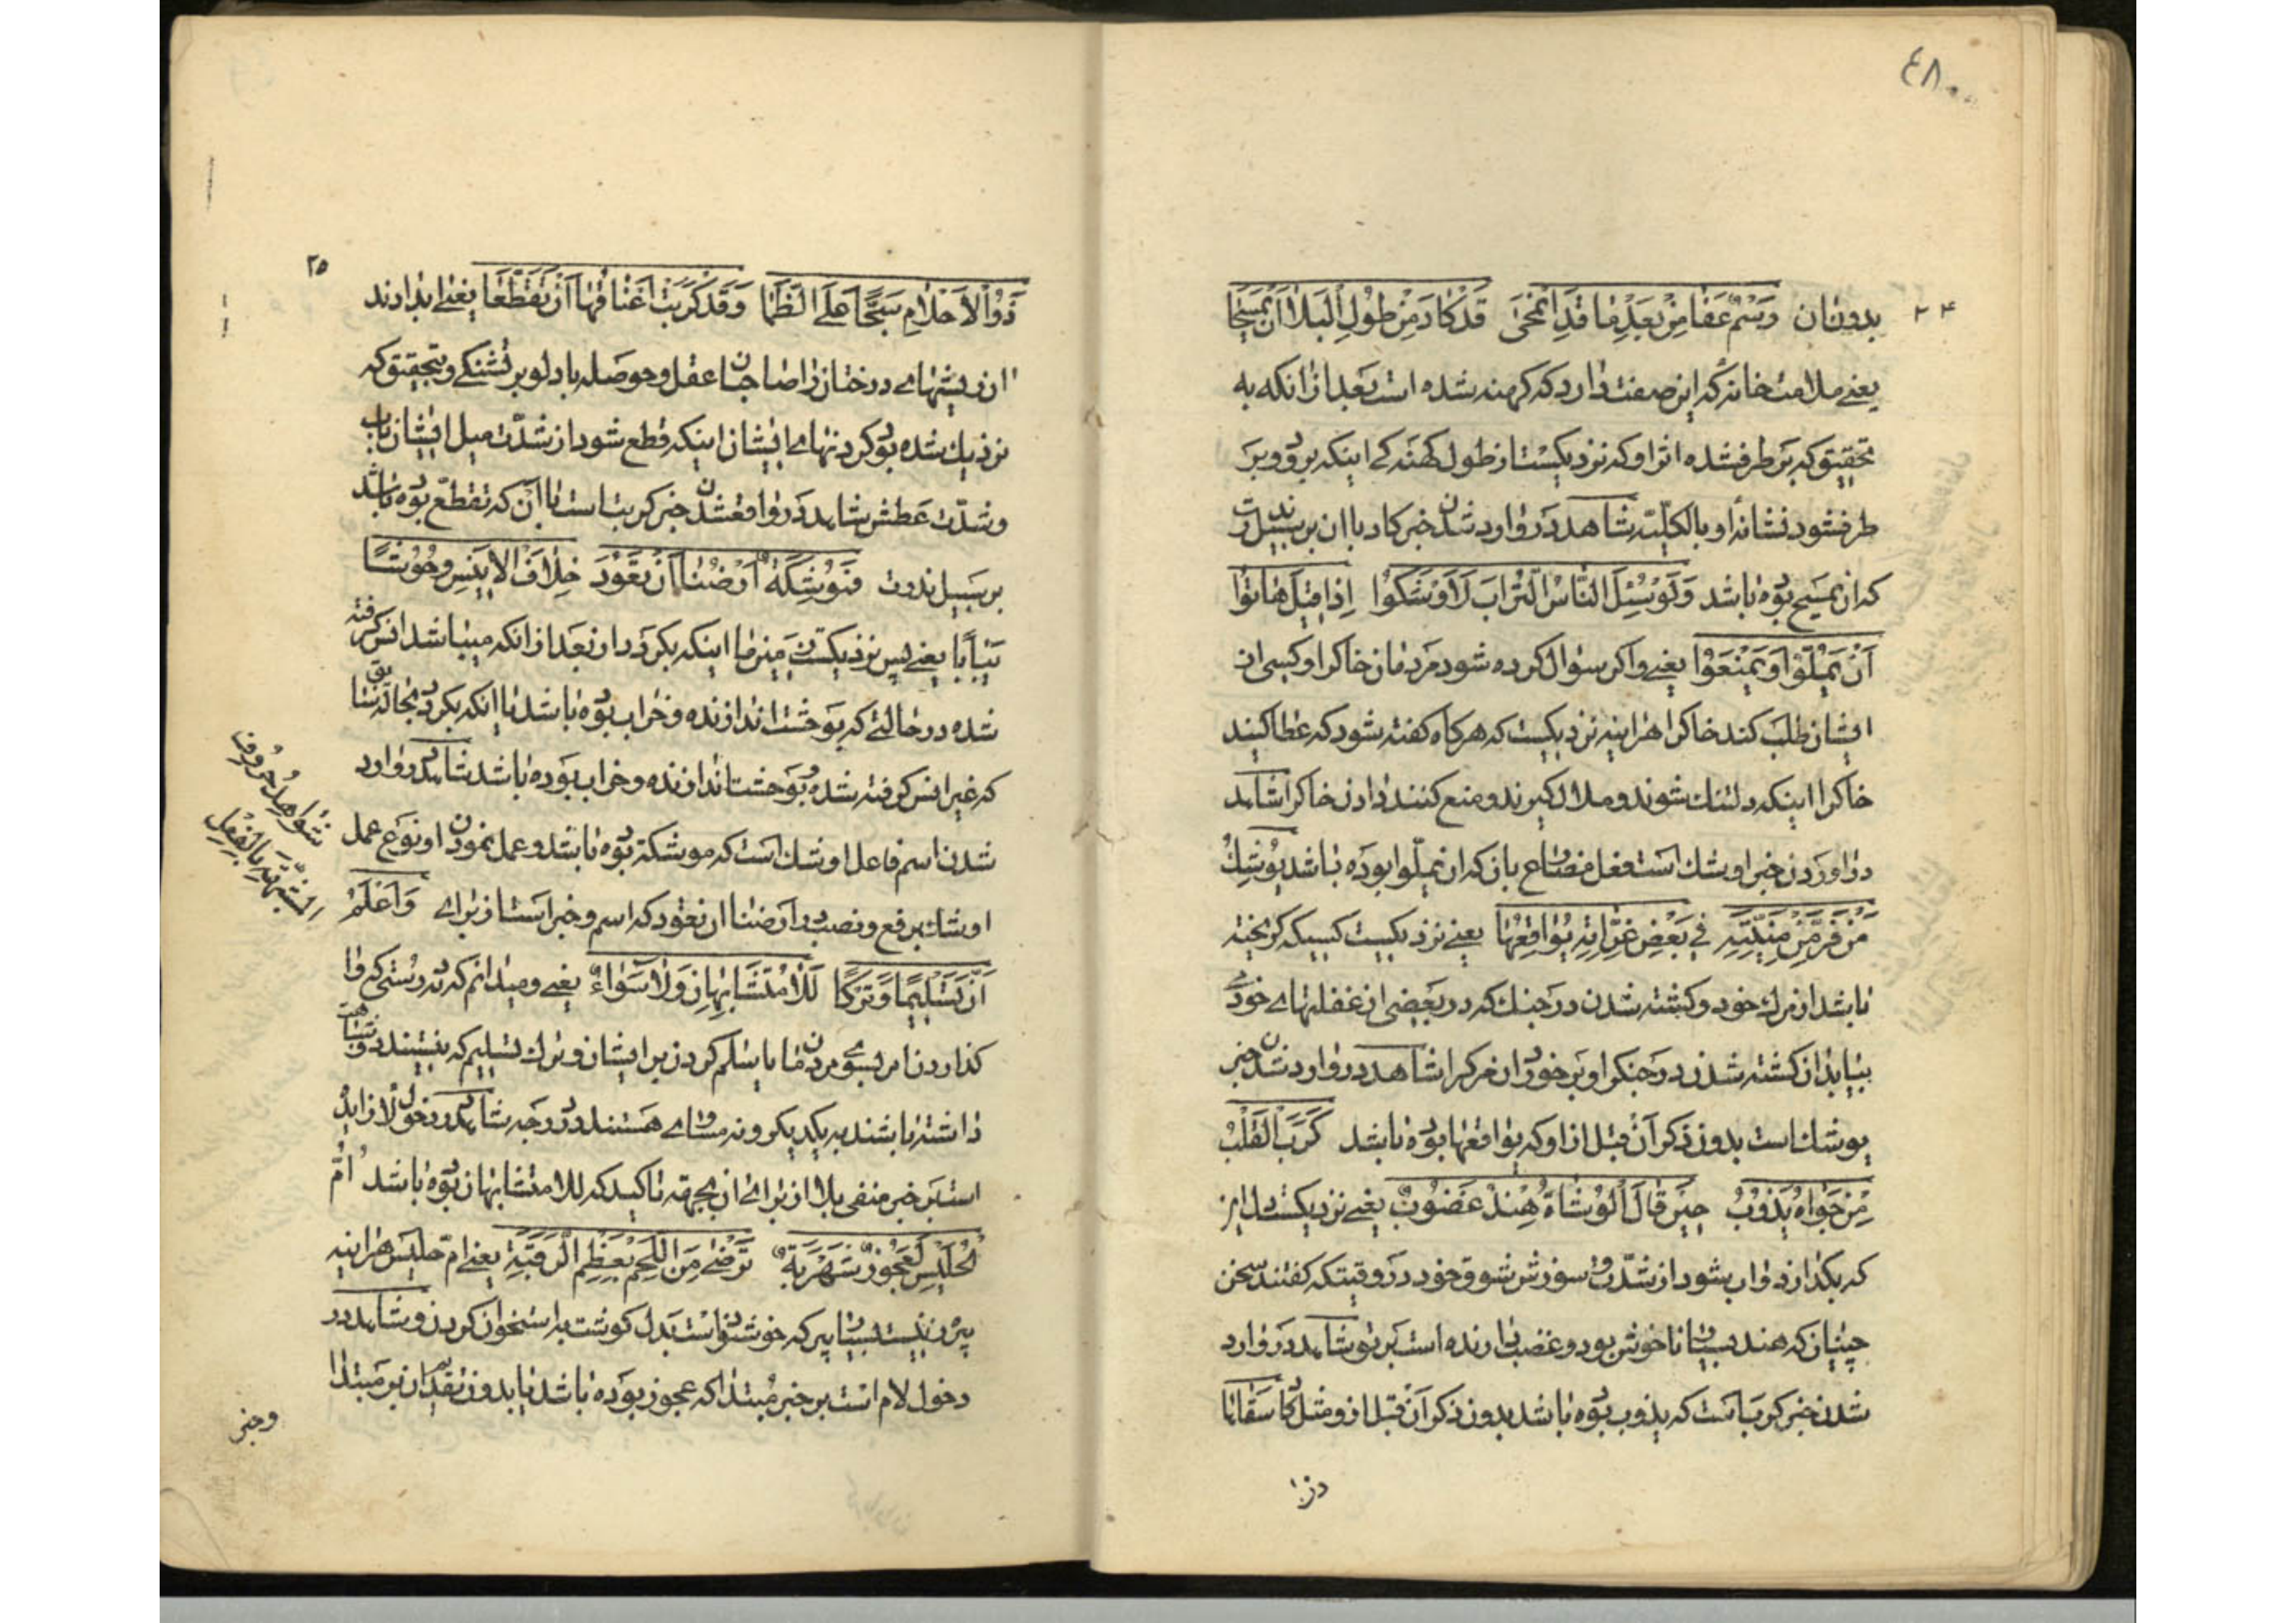 ٤٨
٢٤
بدون ان وَرَسْمٌ عَفا مِنْ بَعْدِ ما قَدِ انْمَحَى قَدْ كادَ مِنْ طُولِ الْبَلا اَنْ يَمْسَحا
يعنے علامت خانه که این صفت دارد که کهنه شده است بعد از انکه به
تحقیق که بر طرف شده اثر او که نزدیکست از طول کهنه کے اینکه برود و بر
طرف شود نشانهٔ او بالکلیّت شاهد در وارد شدن خبر کاد با ان بر سبیل ندرت
که ان یمسح بوده باشد وَلَوْ سُئِلَ النّاسُ التُّرابَ لَاَوْشَكُوا اِذا قِيلَ هاتُوا
اَنْ يَمَلّوا وَيَمْنَعُوا یعنے و اکر سؤال کرده شود مردمان خاکرا و کسی از
ایشان طلب کند خاکرا هراینه نزدیکست که هرکاه کفته شود که عطا کنید
خاکرا اینکه دلتنك شوند و ملال کیرند و منع کنند دادن خاکرا شاهد
در اوردن خبر اوشك است فعل مضارع بان که ان یملّوا بوده باشد يُوشِكُ
مَنْ فَرَّ مِنْ مَنِيَّتِهِ في بَعْضِ غِرّاتِهِ يُوافِقُها یعنے نزدیکست کسیکه کریخته
باشد از مرك خود و کشته شدن در جنك که در بعضی از غفلتهاے خودے
بیابد ان کشته شدن در جنکرا و بر خورد ان مرکرا شاهد در وارد شدن خبر
یوشك است بدون ذکر آنْ قبل از او که یوافقها بوده باشد كَرَبَ الْقَلْبُ
مِنْ جَواهُ يَذُوبُ حِينَ قالَ الْوُشاةُ هِنْدٌ غَضُوبٌ یعنے نزدیکست دل از
که بکدازد و اب شود از شدّت و سوزش شوق خود در وقتیکه کفتند سخن
چینیان که هند بسیار ناخوش بود و غضب دارنده است بر تو شاهد در وارد
شدن خبر کرب است که یذوب بوده باشد بدون ذکر آنْ قبل از و مثل كما سَقاها
٢٥
ذَوُو الْاَحْلامِ سَجْلًا عَلَى الظَّما وَقَدْ كَرَبَتْ اَعْناقُها اَنْ تَقَطَّعا یعنے اب دادند
ان ریشهاے درختان را صاحبان عقل و حوصله با دلو بر تشنکے و بتحقیق که
نزدیك شده بود کردنهاے ایشان اینکه قطع شود از شدّت میل ایشان باب
و شدّت عطش شاهد در واقع شدن خبر کربت است با اَن که تقطّع بوده باشد
بر سبیل ندرت فَمُوشِكَةٌ اَرْضُنا اَنْ تَعُودَ خِلافَ الْاَنِيسِ وَحُوشًا
يَبابًا یعنے پس نزدیکست زمین ما اینکه بکردد ان بعد از انکه میباشد انس کرفته
شده در حالتے که بوحشت اندازنده و خراب بوده باشد یا اینکه بکردد بحالتے
که غیر انس کرفته شده و بوحشت اندازنده و خراب بوده باشد شاهد در وارد
شدن اسم فاعل اوشك است که موشکة بوده باشد و عمل نمودن او نوع عمل
اوشك برفع و نصب در ارضنا ان تعود که اسم و خبر است از براے وَاَعْلَمُ
اَنَّ تَسْلِيمًا وَتَرْكًا لَلا مُتَشابِهانِ وَلا سَواءُ یعنے و میدانم که بدرستی که وا
کذاردن امر بسوے مردمان ما یا تسلیم کردن بر ایشان و ترك تسلیم که نیستند شباهت
داشته باشند به یکدیکر و نه مساوے هستند در درجه شاهد در دخول لازایده
است بر خبر منفی بلا از براے ان بجهة تاکید که للا متشابهان بوده باشد اُمُّ
الْحُلَيْسِ لَعَجُوزٌ شَهْرَبَةٌ تَرْضى مِنَ اللَّحْمِ بِعَظْمِ الرَّقَبَةِ یعنے امّ حلیس هراینه
پیر زنیست بسیار پیر که خوشنود است بدل کوشت به استخوان کردن و شاهد در
دخول لام است بر خبر مبتدا که عجوز بوده باشد یا بدون تقدم ان بر مبتدا
شَواهِدُ حُرُوفِ
الْمُشَبَّهَةِ بِالْفِعْلِ
وخبر